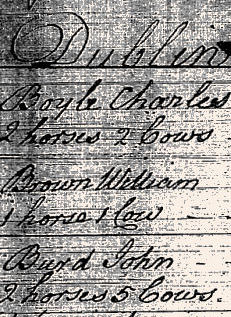 Dublin
Boyle Charles
2 horses 2 Cows
Brown William
1 horse 1 Cow
Burd John
2 horses 5 Cows.